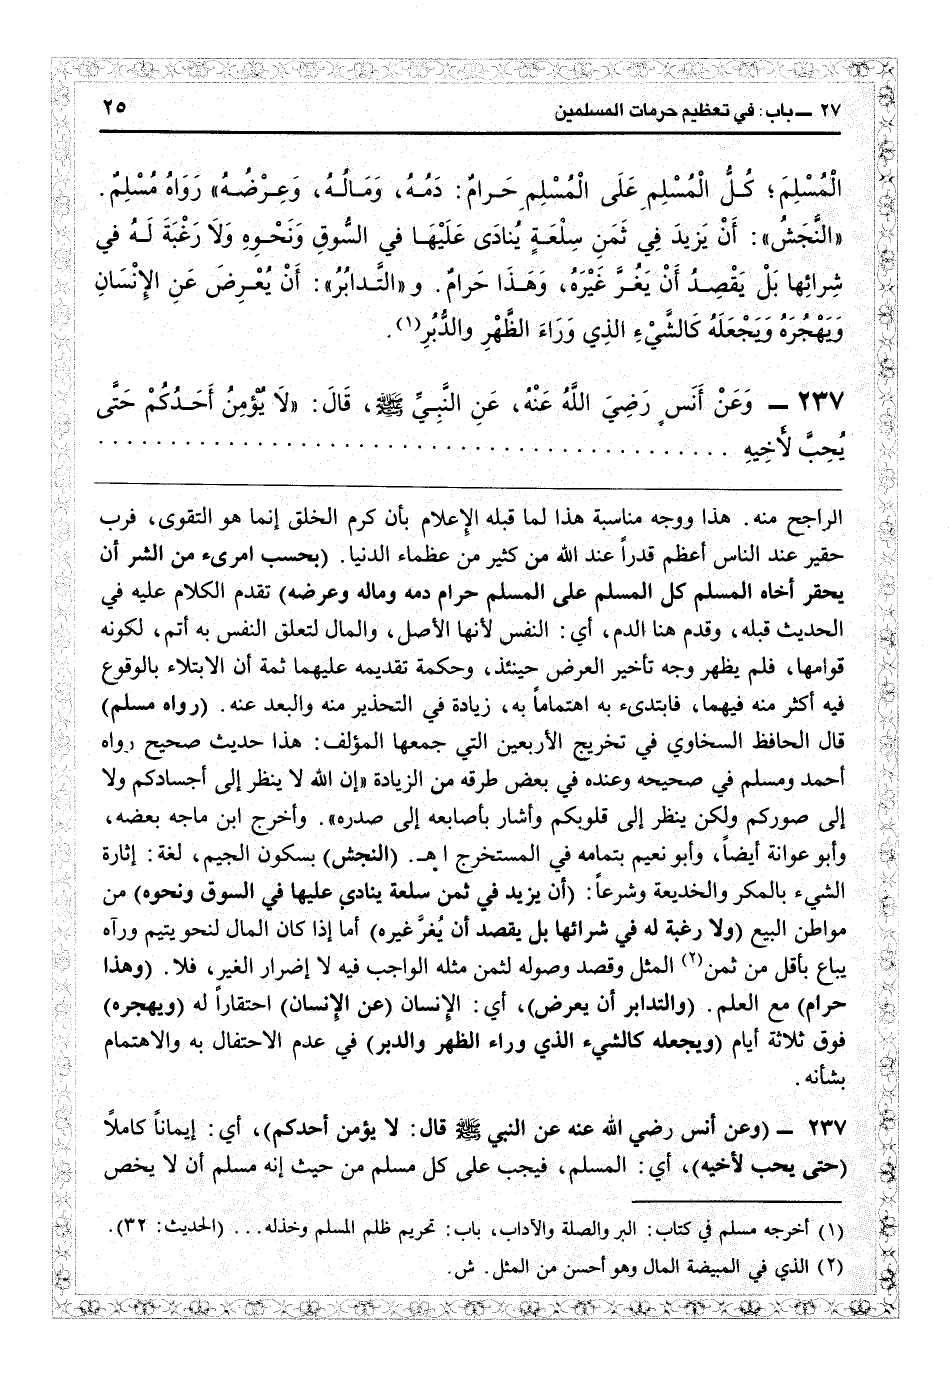 ٢٧ ــ باب: في تعظيم حرمات المسلمين ٢٥
الْمُسْلِمَ؛ كُلُّ الْمُسْلِمِ عَلَى الْمُسْلِمِ حَرامٌ: دَمُهُ، وَمَالُهُ، وَعِرْضُهُ» رَوَاهُ مُسْلِمٌ.
«النَّجَشُ»: أَنْ يَزِيدَ فِي ثَمَنِ سِلْعَةٍ يُنَادَى عَلَيْهَا في السُّوقِ وَنَحْوِهِ وَلَا رَغْبَةَ لَهُ في
شِرائِها بَلْ يَقْصِدُ أَنْ يَغُرَّ غَيْرَهُ، وَهَذَا حَرامٌ. و «التَّدابُرُ»: أَنْ يُعْرِضَ عَنِ الإِنْسَانِ
وَيَهْجُرَهُ وَيَجْعَلَهُ كَالشَّيْءِ الذِي وَرَاءَ الظَّهْرِ والدُّبُرِ(١).
٢٣٧ ــ وَعَنْ أَنَسٍ رَضِيَ اللَّهُ عَنْهُ، عَنِ النَّبِيِّ ﷺ، قَالَ: «لَا يُؤْمِنُ أَحَدُكُمْ حَتَّى
يُحِبَّ لأَخِيهِ ......................................
الراجح منه. هذا ووجه مناسبة هذا لما قبله الإعلام بأن كرم الخلق إنما هو التقوى، فرب
حقير عند الناس أعظم قدراً عند الله من كثير من عظماء الدنيا. (بحسب امرىء من الشر أن
يحقر أخاه المسلم كل المسلم على المسلم حرام دمه وماله وعرضه) تقدم الكلام عليه في
الحديث قبله، وقدم هنا الدم، أي: النفس لأنها الأصل، والمال لتعلق النفس به أتم، لكونه
قوامها، فلم يظهر وجه تأخير العرض حينئذ، وحكمة تقديمه عليهما ثمة أن الابتلاء بالوقوع
فيه أكثر منه فيهما، فابتدىء به اهتماماً به، زيادة في التحذير منه والبعد عنه. (رواه مسلم)
قال الحافظ السخاوي في تخريج الأربعين التي جمعها المؤلف: هذا حديث صحيح رواه
أحمد ومسلم في صحيحه وعنده في بعض طرقه من الزيادة «إن الله لا ينظر إلى أجسادكم ولا
إلى صوركم ولكن ينظر إلى قلوبكم وأشار بأصابعه إلى صدره». وأخرج ابن ماجه بعضه،
وأبو عوانة أيضاً، وأبو نعيم بتمامه في المستخرج اهـ. (النجش) بسكون الجيم، لغة: إثارة
الشيء بالمكر والخديعة وشرعاً: (أن يزيد في ثمن سلعة ينادي عليها في السوق ونحوه) من
مواطن البيع (ولا رغبة له في شرائها بل يقصد أن يُغرَّ غيره) أما إذا كان المال لنحو يتيم ورآه
يباع بأقل من ثمن(٢) المثل وقصد وصوله لثمن مثله الواجب فيه لا إضرار الغير، فلا. (وهذا
حرام) مع العلم. (والتدابر أن يعرض)، أي: الإنسان (عن الإنسان) احتقاراً له (ويهجره)
فوق ثلاثة أيام (ويجعله كالشيء الذي وراء الظهر والدبر) في عدم الاحتفال به والاهتمام
بشأنه.
٢٣٧ ــ (وعن أنس رضي الله عنه عن النبي ﷺ قال: لا يؤمن أحدكم)، أي: إيماناً كاملاً
(حتى يحب لأخيه)، أي: المسلم، فيجب على كل مسلم من حيث إنه مسلم أن لا يخص
(١) أخرجه مسلم في كتاب: البر والصلة والآداب، باب: تحريم ظلم المسلم وخذله... (الحديث: ٣٢).
(٢) الذي في المبيضة المال وهو أحسن من المثل. ش.